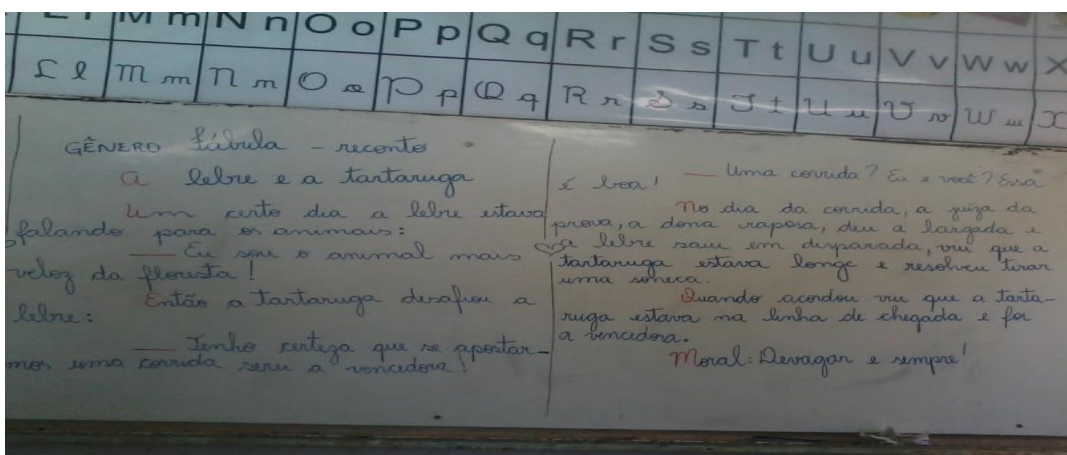 L l M m N n O o P p Q q R r S s T t U u V v W w X
L l M m N n O o P p Q q R r S s T t U u V v W w X
GÊNERO fábula - reconto
A lebre e a tartaruga
Um certo dia a lebre estava
falando para os animais:
— Eu sou o animal mais
veloz da floresta!
Então a tartaruga desafiou a
lebre:
— Tenho certeza que se apostar-
mos uma corrida serei a vencedora!
— Uma corrida? Eu e você? Essa
é boa!
No dia da corrida, a juíza da
prova, a dona raposa, deu a largada e
a lebre saiu em disparada, viu que a
tartaruga estava longe e resolveu tirar
uma soneca.
Quando acordou viu que a tarta-
ruga estava na linha de chegada e foi
a vencedora.
Moral: Devagar e sempre!